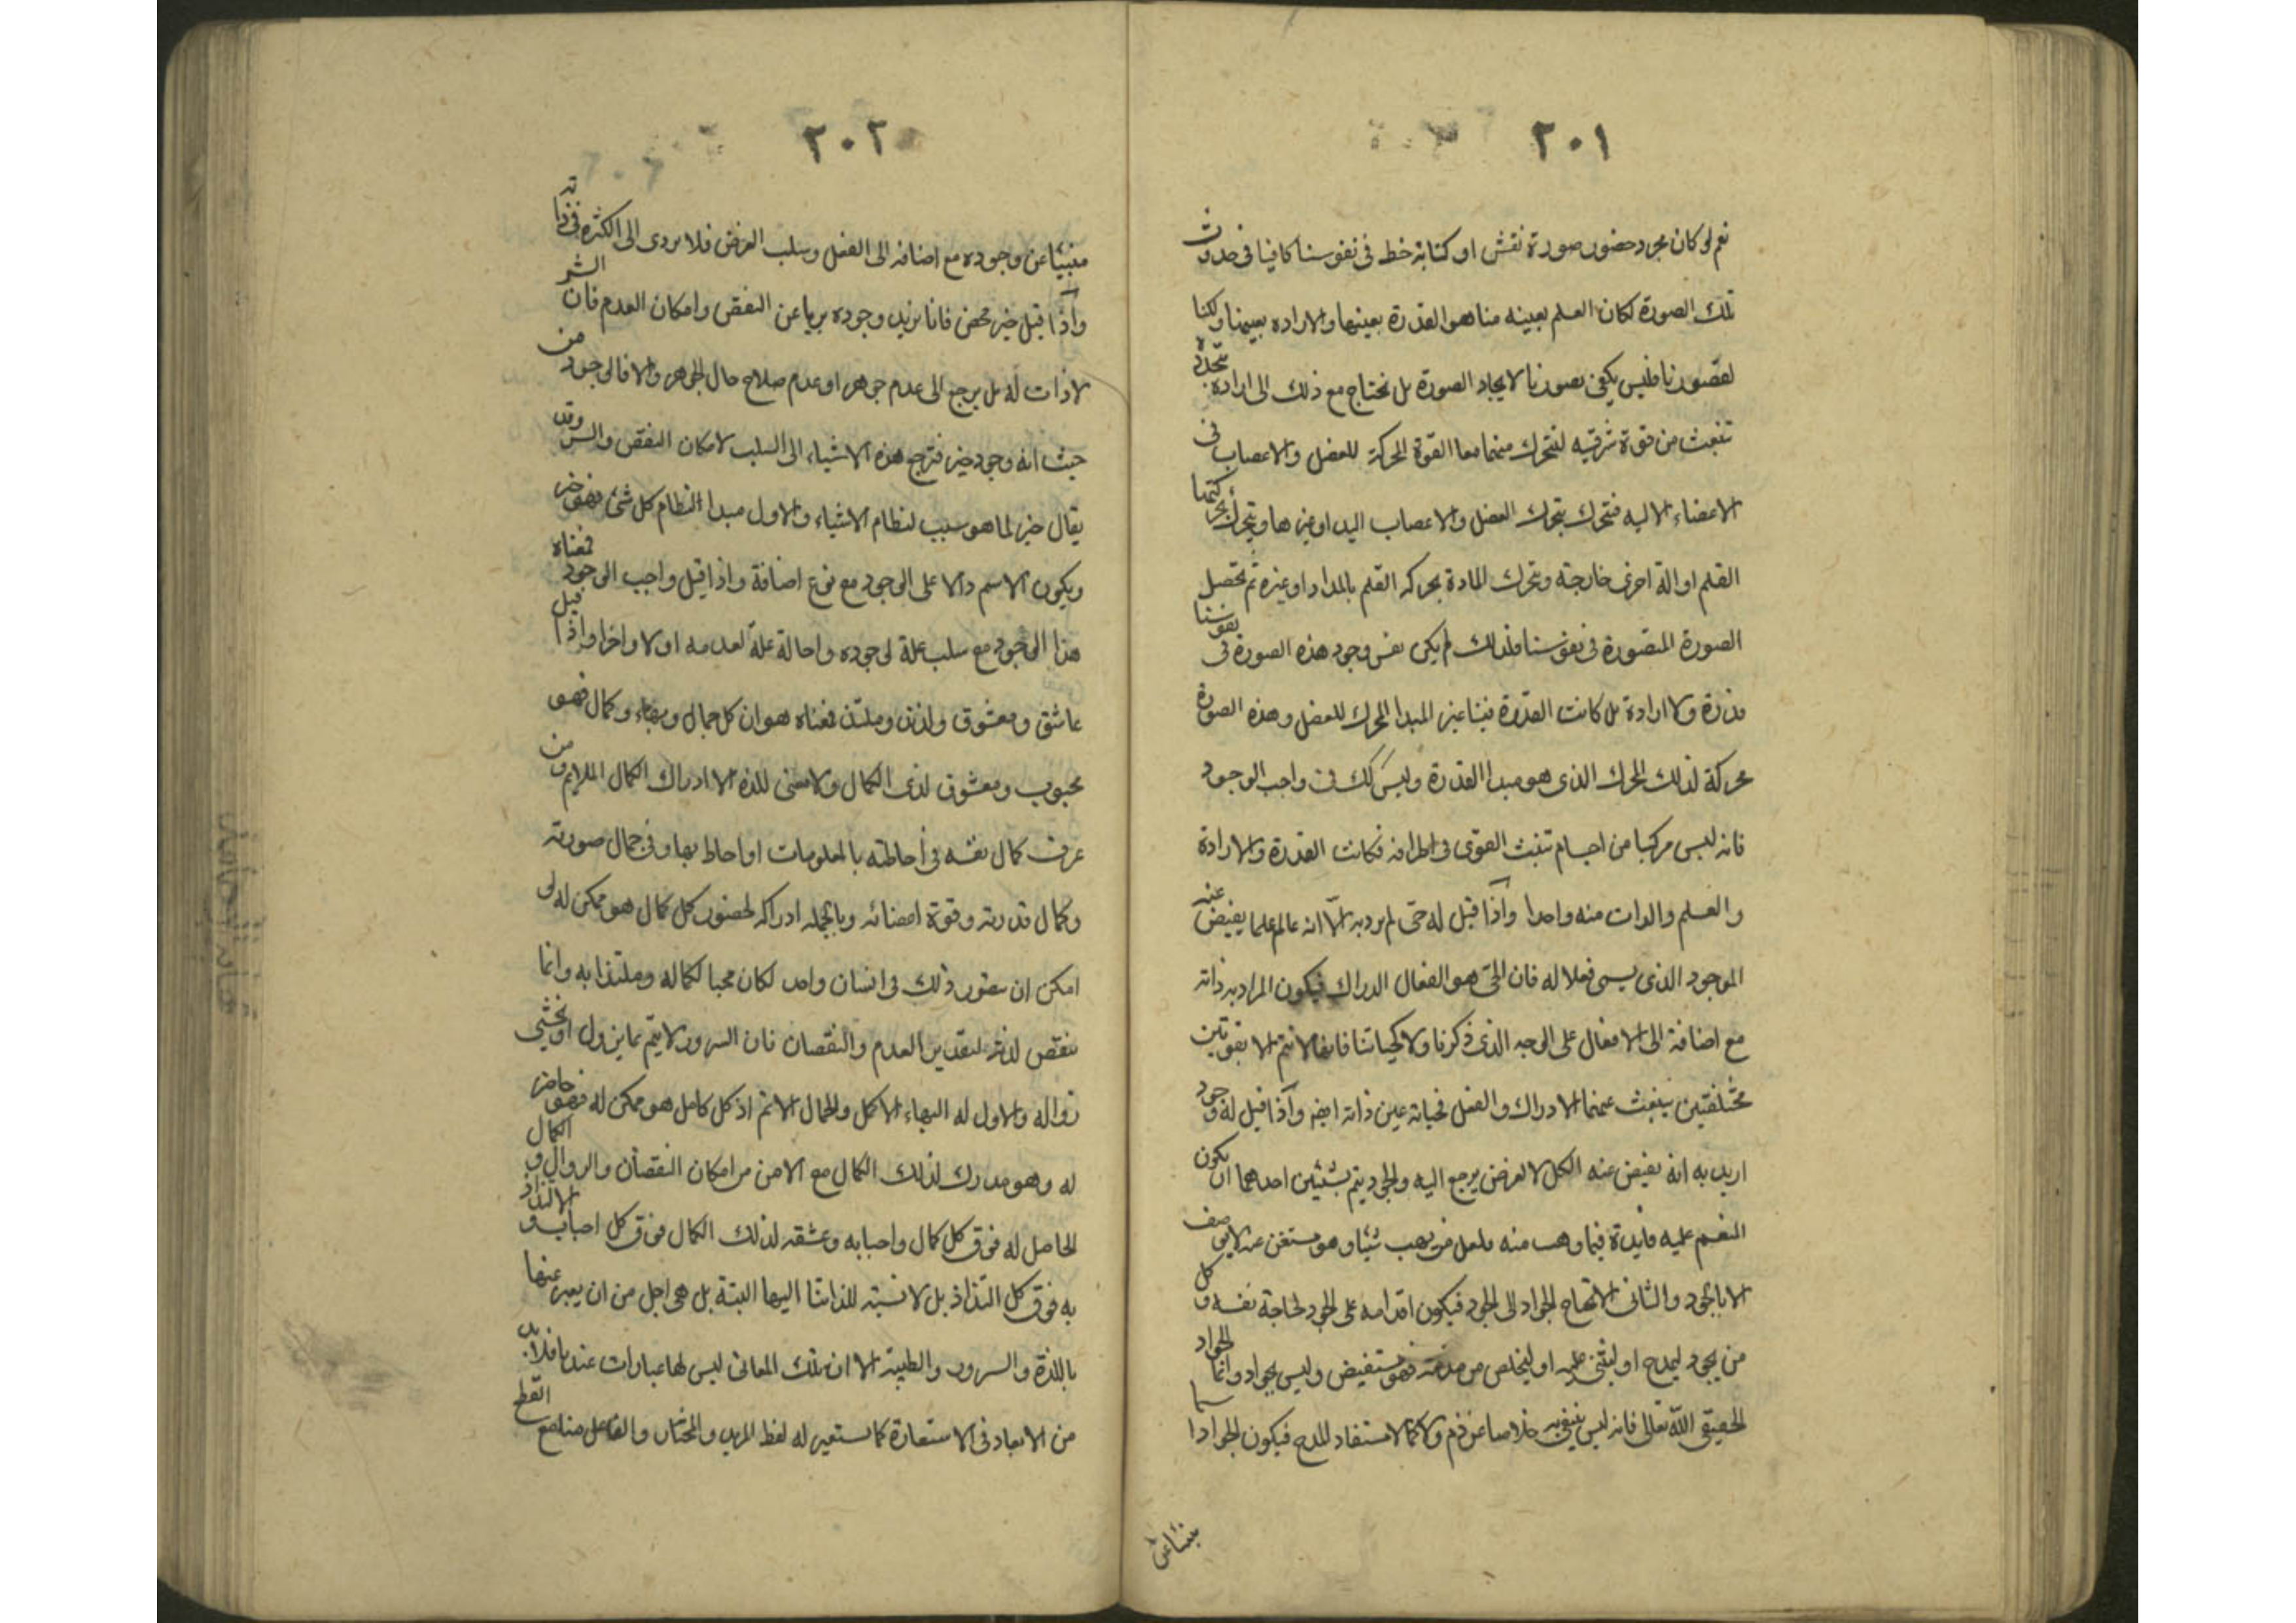 ٢٠١
نعم لو كان مجرد حضور صورة نقش او كتابة خط فى نفوسنا كافيا فى حدوث
تلك الصورة لكان العلم بعينه منا هو القدرة بعينها والاراده بعينها ولكنا
لقصورنا فليس يكفى تصورنا لايجاد الصورة بل نحتاج مع ذلك الى ارادة متجددة
تنبعث من قوة شوقيه ليتحرك منهما معا القوة المحركة للعضل والاعصاب فى
الاعضاء الاليه فتحرك بتحرك العضل والاعصاب اليد او غيرها ويتحرك بحركتها
القلم او الة اخرى خارجة وتحرك المادة بحركه القلم بالمداد او غيره ثم تحصل
الصورة المتصورة فى نفوسنا فلذلك لم يكن نفس وجود هذه الصورة فى نفوسنا
قدرة ولا ارادة بل كانت القدرة فينا عند المبدا المحرك للعضل وهذه الصورة
محركة لذلك المحرك الذى هو مبدا القدرة وليس كك فى واجب الوجود
فانه ليس مركبا من اجسام تنبث القوى فى اطرافه فكانت القدرة والارادة
والعلم والذات منه واحدا واذا قيل له حى لم يرد به الا انه عالم علما يفيض عنه
الموجود الذى يسمى فعلا له فان الحى هو الفعال الدراك فيكون المراد به ذاته
مع اضافة الى الافعال على الوجه الذى ذكرنا ولا كحياتنا فانها لا تتم الا بقوتين
مختلفتين ينبعث عنهما الادراك والفعل فحياته عين ذاته ايضا واذا قيل له وجود
اريد به انه يفيض عنه الكل لا لغرض يرجع اليه والجود يتم بشيئين احدهما ان يكون
المنعم عليه فايدة فيما وهب منه فلعل من يهب شيئا وهو مستغن عنه لا يوصف
الا بالجود والثانى الا يحتاج الجواد الى الجود فيكون اقدامه على الجود لحاجة نفسه وكل
من يجود ليمدح او ليثنى عليه او ليتخلص من مذمة فهو مستفيض وليس بجواد وانما الجواد
الحقيقى الله تعالى فانه ليس ينبغى به خلاصا عن ذم ولا كمالا مستفاد للمدح فيكون الجواد اسما
٢٠٢
منبئا عن وجوده مع اضافة الى الفعل وسلب الغرض فلا يردى الى الكثره فى ذاته
واذا قيل خير محض فانا نريد وجوده بريا عن النقص وامكان العدم فان الشر
لا ذات له بل يرجع الى عدم جوهر او عدم صلاح حال الجوهر والا فالوجود من
حيث انه وجود خير فترجع هذه الاشياء الى السلب لامكان النقص والشر وقد
يقال خير لما هو سبب لنظام الاشياء والاول مبدا النظام كل شئ فهو خير
ويكون الاسم دالا على الوجود مع نوع اضافة واذا قيل واجب الوجود فمعناه
هذا الوجود مع سلب علة لوجوده واحالة علة لعدمه اولا واخرا واذا قيل
عاشق ومعشوق ولذيذ وملتذ فمعناه هو ان كل جمال وبهاء وكمال فهو
محبوب ومعشوق لذى الكمال ولا معنى للذه الا ادراك الكمال الملايم ومن
عرف كمال نفسه فى احاطته بالمعلومات او احاط بها وفى جمال صورته
وكمال قدرته وقوة اعضائه وبالجمله ادراكه لحضور كل كمال هو ممكن له لو
امكن ان يتصور ذلك فى انسان واحد لكان محبا لكماله وملتذا به وانما
ينقص لذته لتقدير العدم والنقصان فان السرور لا يتم بما يزول او يخشى
زواله والاول له البهاء الاكمل والجمال الاتم اذ كل كامل هو ممكن له فهو حاضر
له وهو مدرك لذلك الكمال مع الامن من امكان النقصان والزوال والكمال
الحاصل له فوق كل كمال واحبابه وعشقه لذلك الكمال فوق كل احباب والالتذاذ
به فوق كل التذاذ بل لا نسبة للذاتنا اليها البتة بل هى اجل من ان يعبر عنها
باللذة والسرور والطيبة الا ان تلك المعانى ليس لها عبارات عندنا فلابد
من الابعاد فى الاستعارة كما يستعير له لفظ المريد والمختار والفاعل منا مع القطع